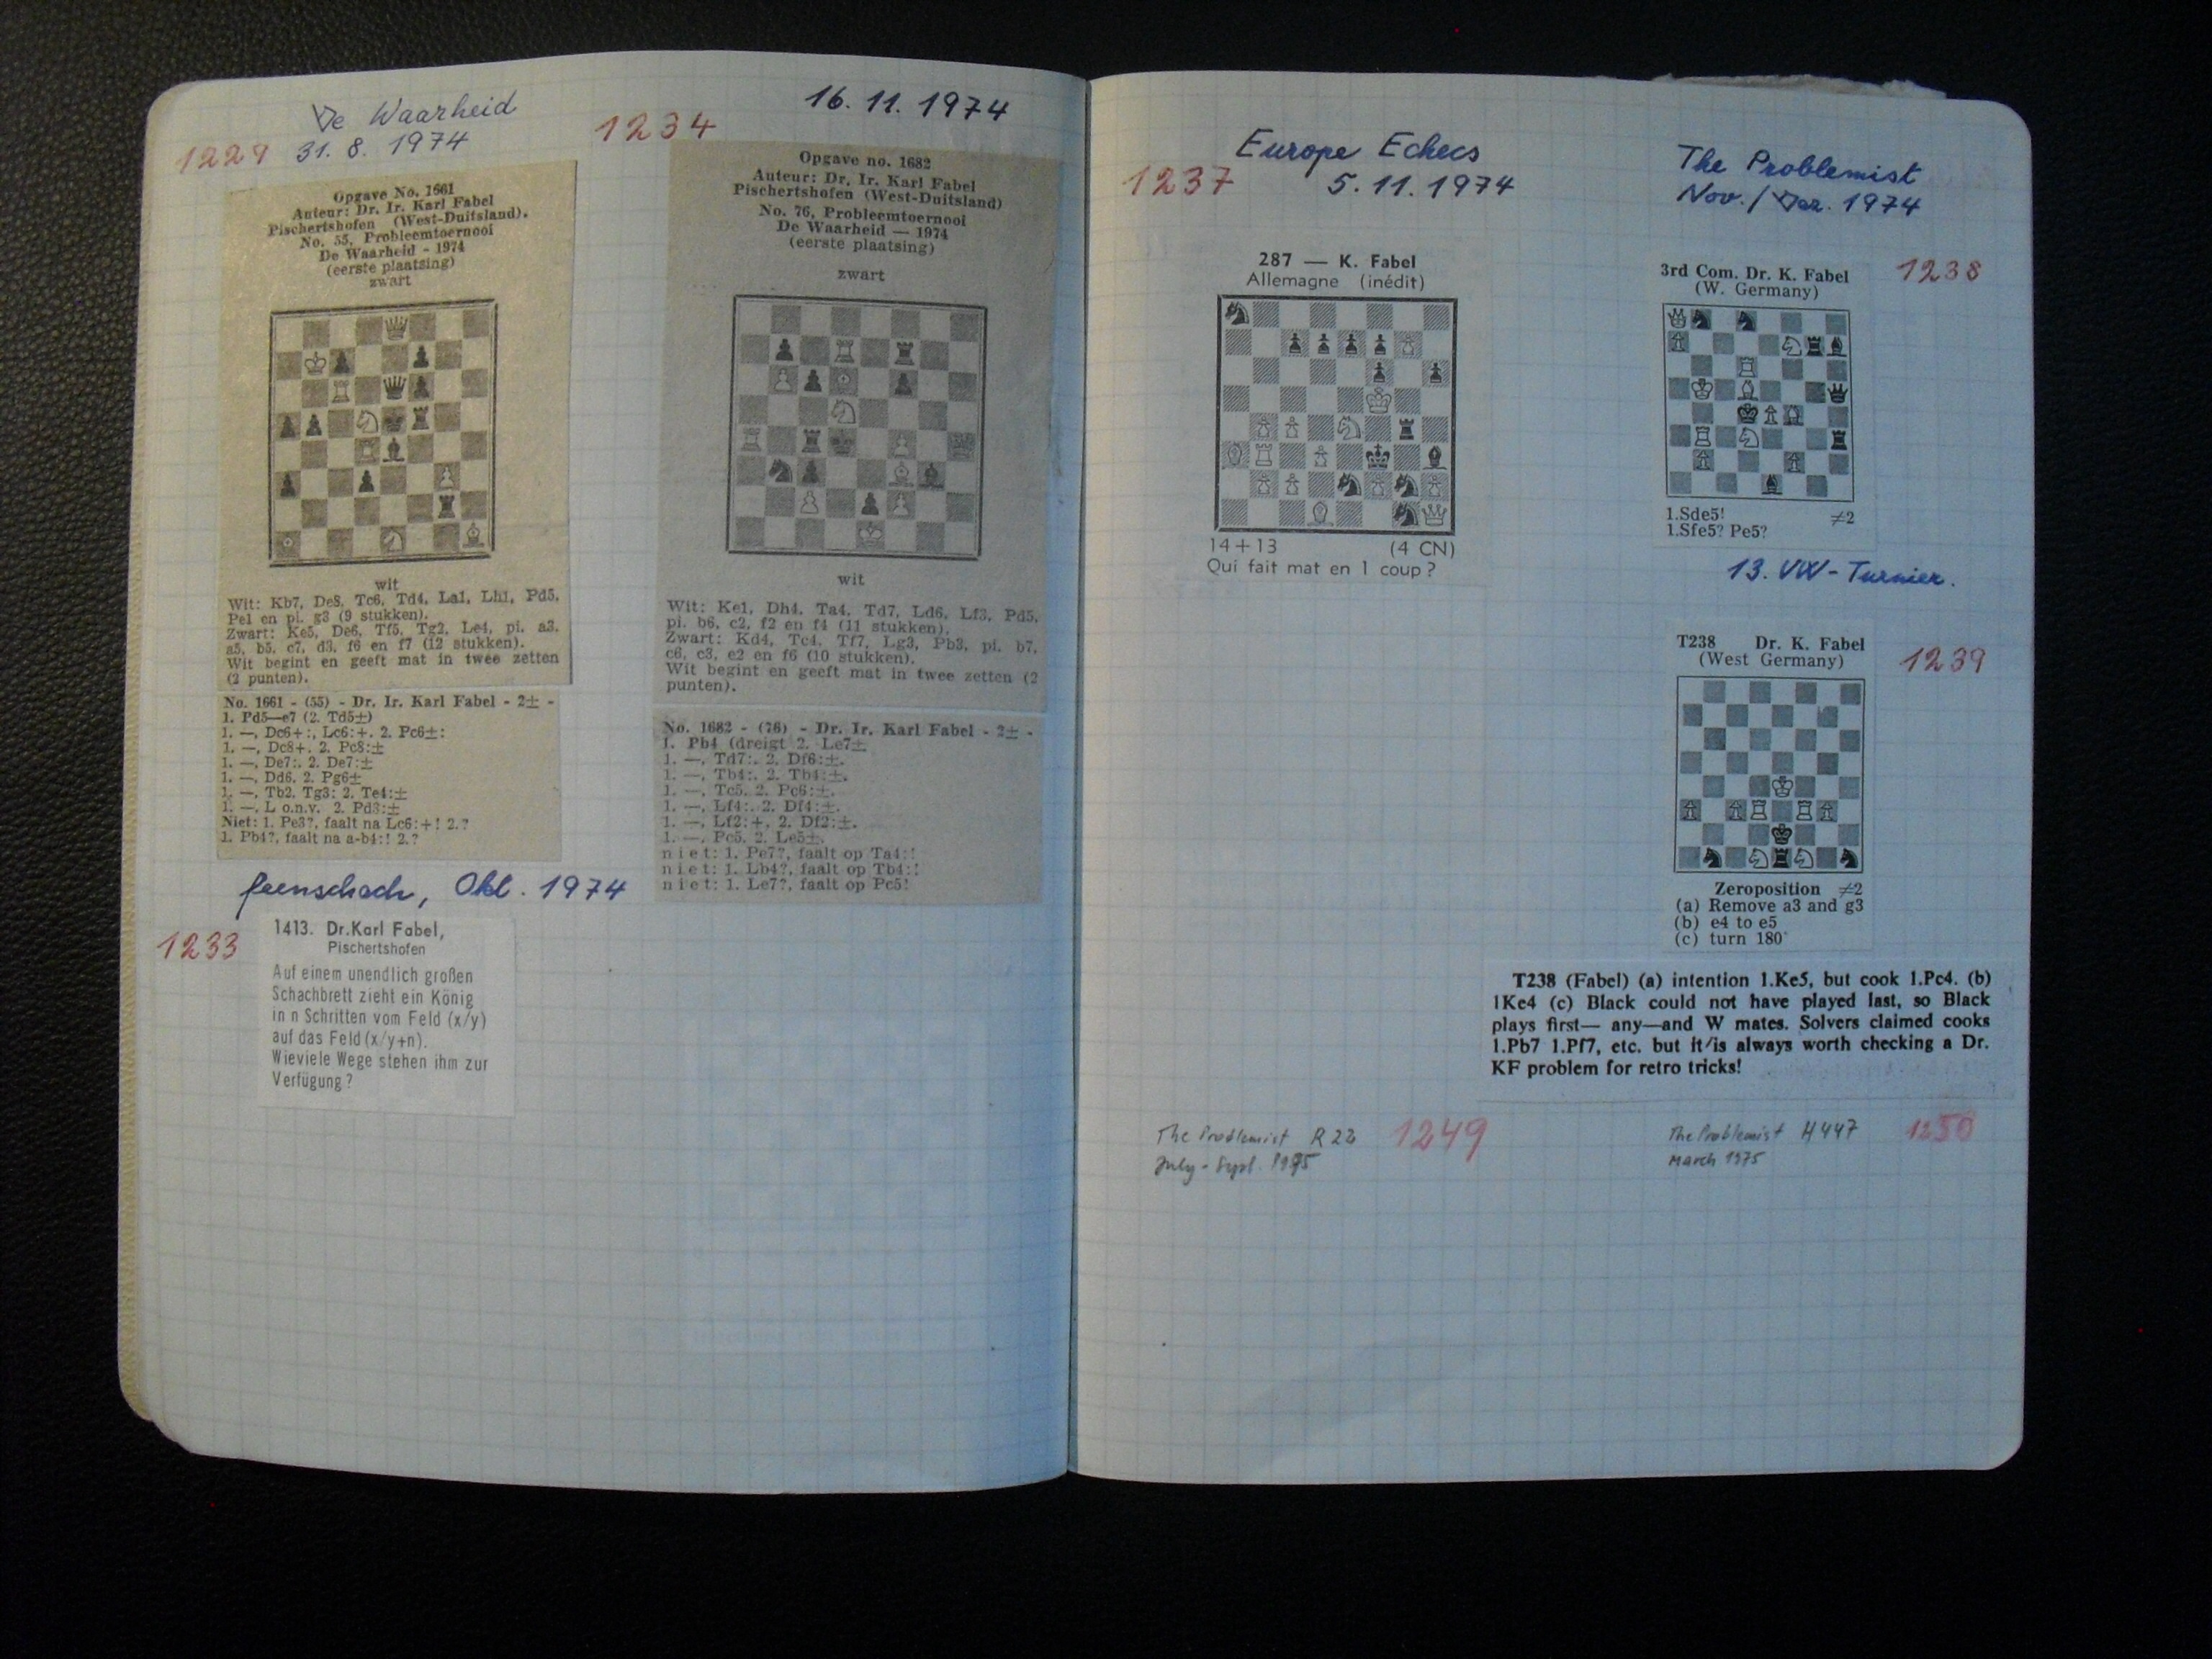 De Waarheid
31. 8. 1974
1229
Opgave No. 1661
Auteur: Dr. Ir. Karl Fabel
Pischertshofen (West-Duitsland).
No. 55, Probleemtoernooi
De Waarheid - 1974
(eerste plaatsing)
zwart
wit
Wit: Kb7, De8, Tc6, Td4, La1, Lh1, Pd5,
Pe1 en pi. g3 (9 stukken).
Zwart: Ke5, De6, Tf5, Tg2, Le4, pi. a3,
a5, b5, c7, d3, f6 en f7 (12 stukken).
Wit begint en geeft mat in twee zetten
(2 punten).
No. 1661 - (55) - Dr. Ir. Karl Fabel - 2± -
1. Pd5—e7 (2. Td5±)
1. —, Dc6+:, Lc6:+. 2. Pc6±:
1. —, Dc8+. 2. Pc8:±
1. —, De7:. 2. De7:±
1. —, Dd6. 2. Pg6±
1. —, Tb2. Tg3: 2. Te4:±
1. —, L o.n.v. 2. Pd3:±
Niet: 1. Pe3?, faalt na Lc6:+! 2.?
1. Pb4?, faalt na a-b4:! 2.?
feenschach, Okt. 1974
1233
1413. Dr. Karl Fabel,
Pischertshofen
Auf einem unendlich großen
Schachbrett zieht ein König
in n Schritten vom Feld (x/y)
auf das Feld (x/y+n).
Wieviele Wege stehen ihm zur
Verfügung?
16. 11. 1974
1234
Opgave no. 1682
Auteur: Dr. Ir. Karl Fabel
Pischertshofen (West-Duitsland)
No. 76, Probleemtoernooi
De Waarheid — 1974
(eerste plaatsing)
zwart
wit
Wit: Ke1, Dh4, Ta4, Td7, Ld6, Lf3, Pd5,
pi. b6, c2, f2 en f4 (11 stukken).
Zwart: Kd4, Tc4, Tf7, Lg3, Pb3, pi. b7,
c6, c3, e2 en f6 (10 stukken).
Wit begint en geeft mat in twee zetten (2
punten).
No. 1682 - (76) - Dr. Ir. Karl Fabel - 2± -
1. Pb4 (dreigt 2. Le7±
1. —, Td7:. 2. Df6:±.
1. —, Tb4:. 2. Tb4:±.
1. —, Tc5. 2. Pc6:±.
1. —, Lf4:. 2. Df4:±.
1. —, Lf2:+, 2. Df2:±.
1. —, Pc5, 2. Le5±.
niet: 1. Pe7?, faalt op Ta4:!
niet: 1. Lb4?, faalt op Tb4:!
niet: 1. Le7?, faalt op Pc5!
Europe Echecs
1237
5. 11. 1974
287 — K. Fabel
Allemagne (inédit)
14+13 (4 CN)
Qui fait mat en 1 coup ?
The Problemist
Nov. / Dez. 1974
3rd Com. Dr. K. Fabel
(W. Germany)
1238
1.Sde5! ≠2
1.Sfe5? Pe5?
13. VW-Turnier.
T238 Dr. K. Fabel
(West Germany)
1239
Zeroposition ≠2
(a) Remove a3 and g3
(b) e4 to e5
(c) turn 180°
T238 (Fabel) (a) intention 1.Ke5, but cook 1.Pc4. (b)
1Ke4 (c) Black could not have played last, so Black
plays first— any—and W mates. Solvers claimed cooks
1.Pb7 1.Pf7, etc. but it/is always worth checking a Dr.
KF problem for retro tricks!
The Problemist R 22 1249
July - Sept. 1975
The Problemist H447 1250
March 1975